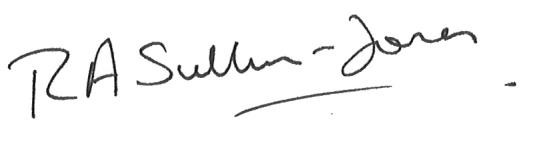 R A Sullivan-Jones